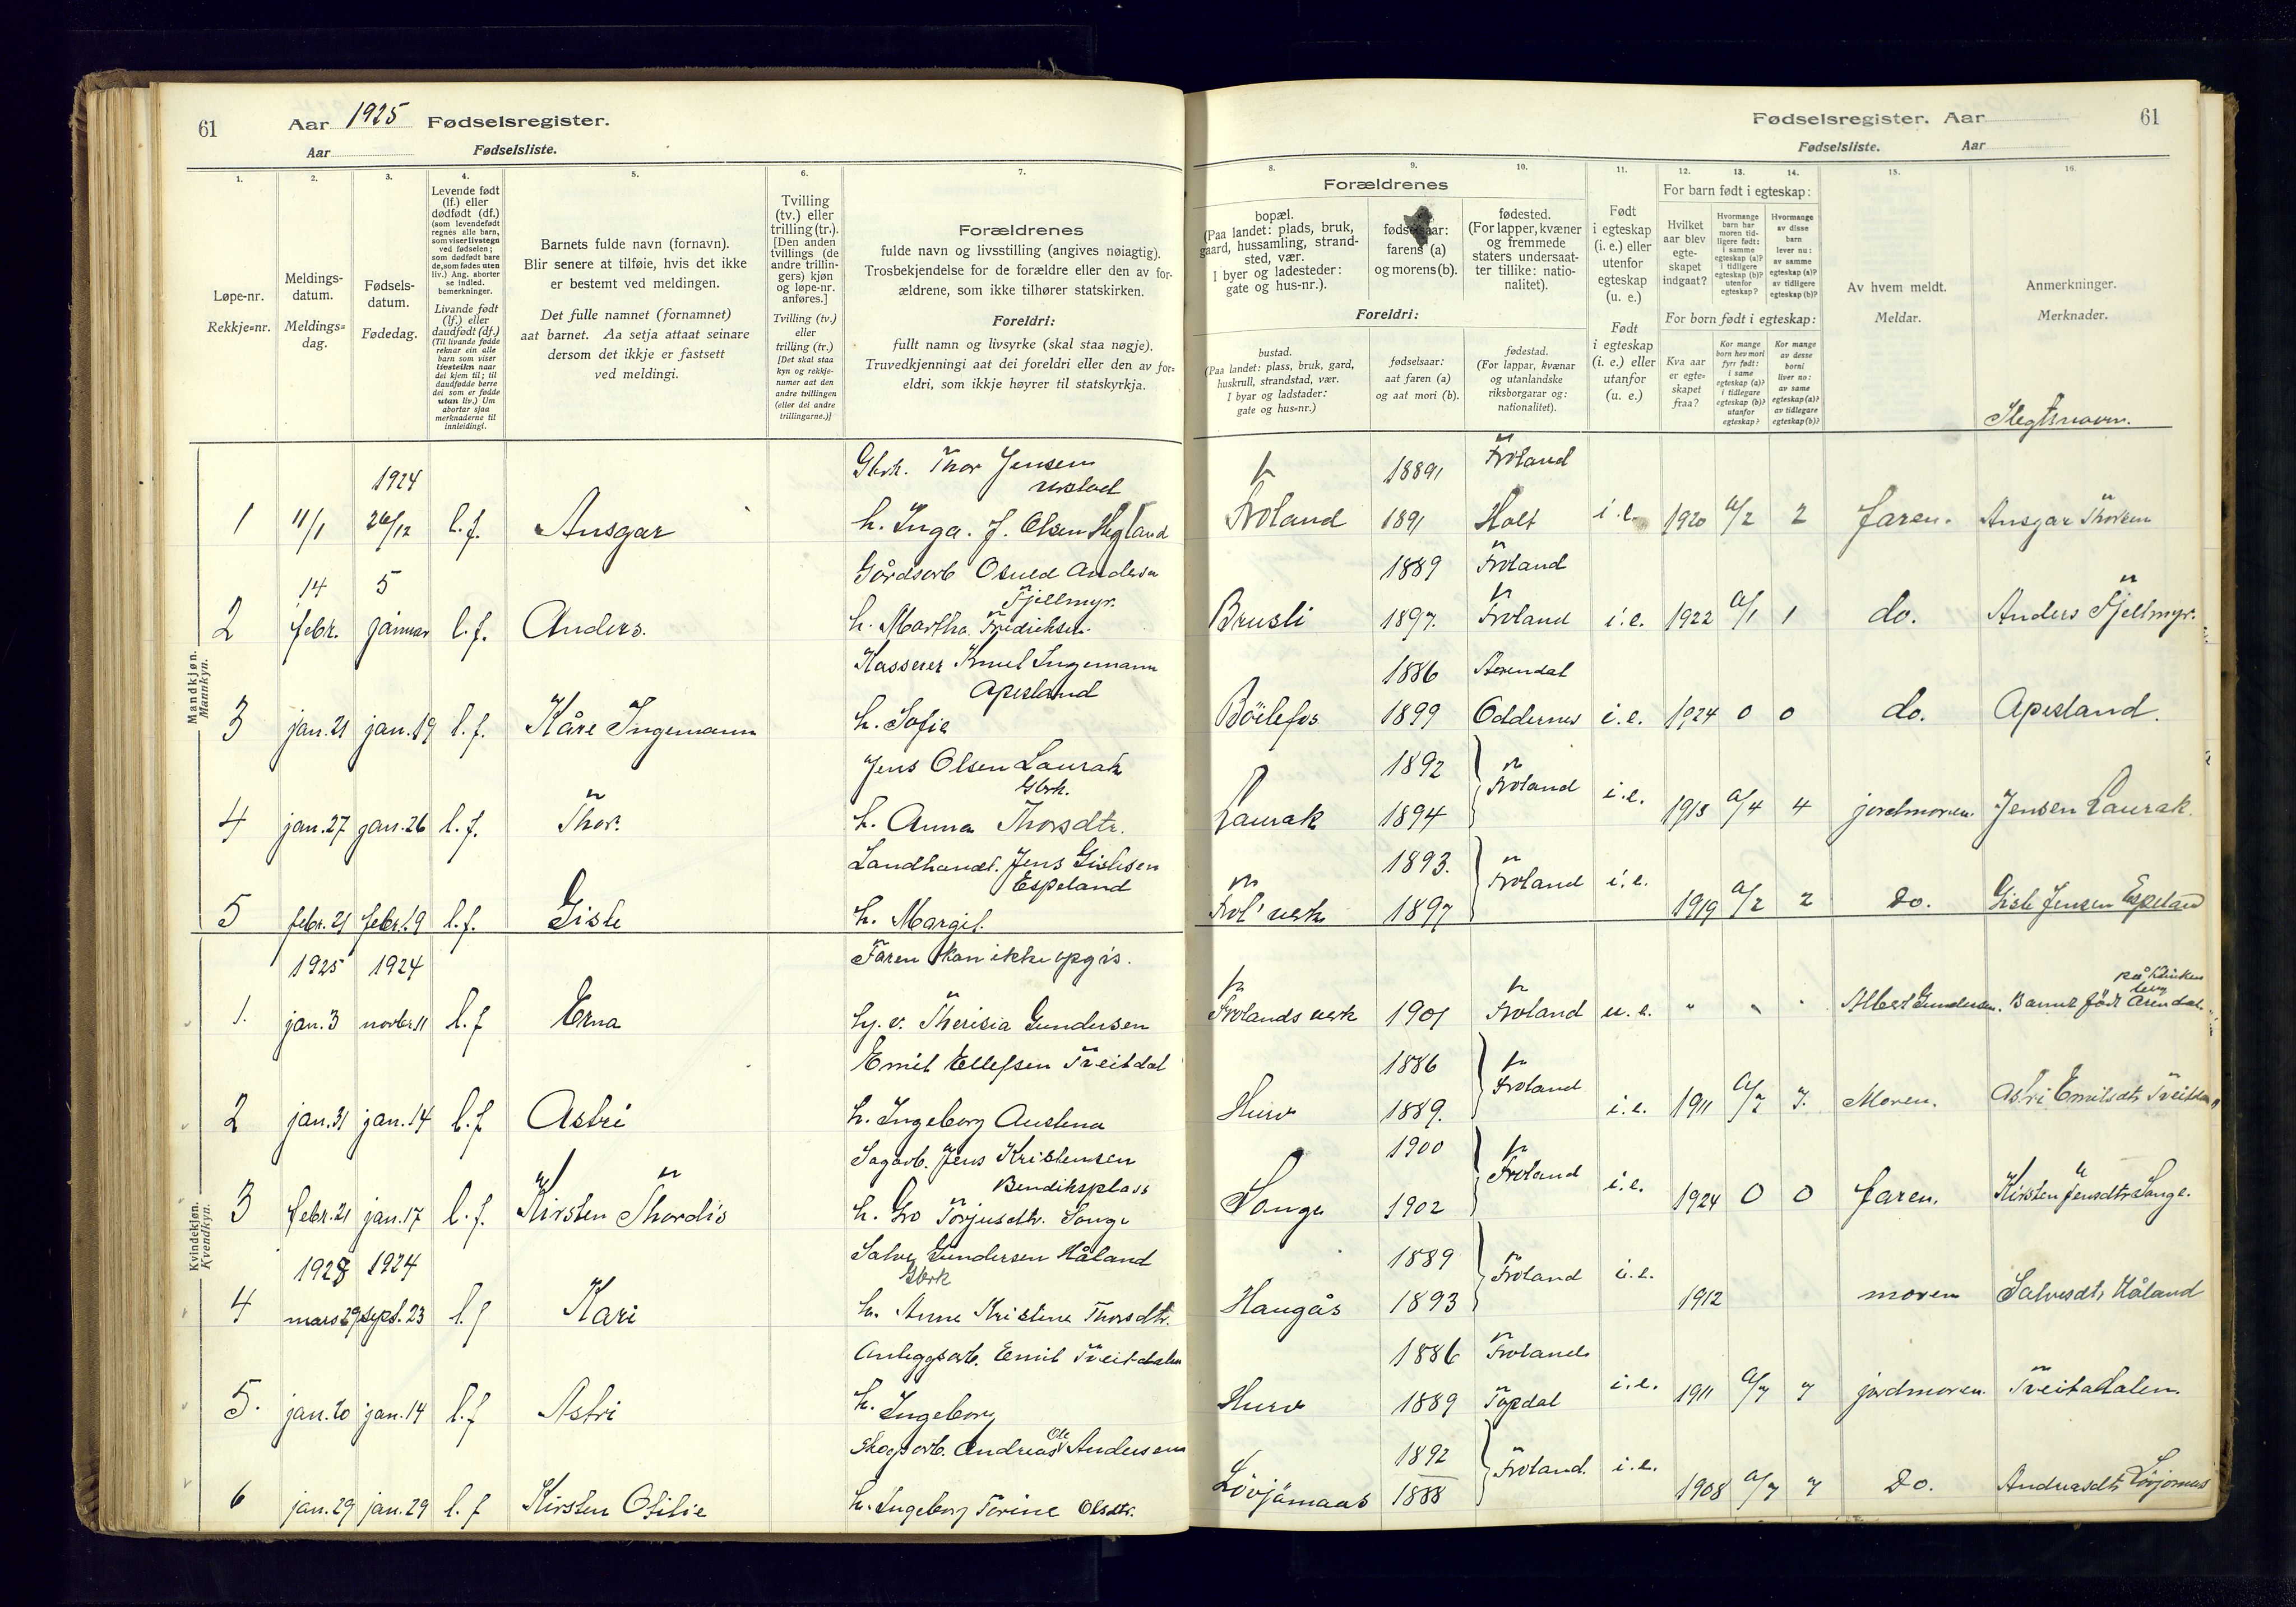 61
Aar 1925 Fødselsregister.
Aar
Fødselsliste.
1.
2.
3.
4.
5.
6.
7.
Løpe-nr.
Rekkje=nr.
Meldings-
datum.
Meldings=
dag.
Fødsels-
datum.
Fødedag.
Levende født
(lf.) eller
dødfødt (df.)
(som levendefødt
regnes alle barn,
som viser livstegn
ved fødselen;
som dødfødt bare
de, som fødes uten
liv.) Ang. aborter
se indled.
bemerkninger.
Livande født
(lf.) eller
daudfødt (df.)
(Til livande fødde
reknar ein alle
barn som viser
livsteikn naar
dei kjem til; til
daudfødde berre
dei som er fødde
utan liv.) Um
abortar sjaa
merknaderne til
innleidingi.
Barnets fulde navn (fornavn).
Blir senere at tilføie, hvis det ikke
er bestemt ved meldingen.
Det fulle namnet (fornamnet)
aat barnet. Aa setja attaat seinare
dersom det ikkje er fastsett
ved meldingi.
Tvilling
(tv.) eller
trilling (tr.).
[Den anden
tvillings (de
andre trillin-
gers) kjøn
og løpe-nr.
anføres.]
Tvilling (tv.)
eller
trilling (tr.)
[Det skal staa
kyn og rekkje-
numer aat den
andre tvillingen
(eller dei andre
trillingarne.)]
Forældrenes
fulde navn og livsstilling (angives nøiagtig).
Trosbekjendelse for de forældre eller den av for-
ældrene, som ikke tilhører statskirken.
Foreldri:
fullt namn og livsyrke (skal staa nøgje).
Truvedkjenningi aat dei foreldri eller den av for=
eldri, som ikkje høyrer til statskyrkja.
Fødselsregister. Aar
61
Fødselsliste.
Aar
8.
9.
10.
11.
12.
13.
14.
15.
16.
Forældrenes
bopæl.
(Paa landet: plads, bruk,
gaard, hussamling, strand-
sted, vær.
I byer og ladesteder:
gate og hus-nr.).
fødselsaar:
farens (a)
og morens (b).
fødested.
(For lapper, kvæner
og fremmede
staters undersaat-
ter tillike: natio-
nalitet).
Foreldri:
bustad.
(Paa landet: plass, bruk, gard,
huskrull, strandstad, vær.
I byar og ladstader:
gate og hus=nr.)
fødselsaar:
aat faren (a)
og aat mori (b).
fødestad.
(For lappar, kvænar
og utanlandske
riksborgarar og:
nationalitet).
Født
i egteskap
(i. e.) eller
utenfor
egteskap
(u. e.)
Født
i egteskap
(i. e.) eller
utanfor
(u. e.)
For barn født i egteskap:
Hvilket
aar blev
egte-
skapet
indgaat?
Hvormange
barn har
moren tid-
ligere født:
i samme
egteskap (a)?
i tidligere
egteskap (b)?
utenfor
egteskap?
Hvormange
av disse
barn
lever nu:
av samme
egteskap (a)?
av tidligere
egteskap (b)?
For born født i egteskap:
Kva aar
er egte-
skapet
fraa?
Kor mange
born hev mori
fyrr født:
i same
egteskap (a)?
i tidlegare
egteskap (b)?
utanfor
egteskap?
Kor mange
av desse
borni
liver no:
av same
egteskap (a)?
av tidlegare
egteskap (b)?
Av hvem meldt.
Meldar.
Anmerkninger.
Merknader.
Slegtsnavn.
Mandkjøn.
Mannkyn.
1924 Gbrk. Thor Jensen 1889 Froland
1 11/1 26/12 l.f. Ansgar h. Inga. J. Olsen Hegland Froland 1891 Holt i.e. 1920 a/2 2 faren. Ansgar
14 5 Gårdsarb Osuld Andersen 1889 Froland
Fjellmyr.
2 febr. januar l.f. Anders. h. Martha Fredriksen. Brusli 1897. Froland i.e. 1922 a/1 1 do. Anders Fjellmyr.
Kasserer Knut Ingemann 1886 Arendal
Apesland
3 jan. 21 jan. 19 l.f. Kåre Ingemann h. Sofie Böilefos 1899 Oddernes i.e. 1924 0 0 do. Apesland.
Jens Olsen Laurak 1892
Gbrk. Froland
4 jan. 27 jan. 26 l.f. Thor. h. Anna Thorsdtr. Laurak 1894 i.e. 1913 a/4 4 jordmoren. Jensen Laurak.
Landhandl. Jens Gislesen 1893.
Espeland Froland i.e.
5 febr. 21 febr. 19 l.f. Gisle h. Margit. Frol' verk 1897 1919 a/2 2 Do. Gisle Jensen Espeland
Kvindekjøn.
Kvendkyn.
1925 1924 Faren kan ikke opgis.
på Klinken
1. jan. 3 novbr. 11 l.f Erna Ug. v. Theresia Gundersen Frolands verk 1901 Froland u.e. " " " Albert Gundersen. Barnet født Arendal
Emil Ellefsen Tveitdal 1886
Froland
2 jan. 31 jan. 14 l.f Astri h. Ingeborg Austena Hurv 1889. i.e. 1911 a/7 7. Moren. Astri Emilsdtr Tveitdalen
Sagarb. Jens Kristensen 1900
Bendiksplass Froland
3 febr. 21 jan. 17 l.f. Kirsten Thordis h. Gro Torjusdtr. Songe Songe 1902 i.e. 1924 0 0 faren. Kirsten Jensdtr Songe.
1925 1924 Salve Gundersen Håland 1889
Gbrk Froland i.e.
4 mars 29 sept. 23 l.f Kari h. Anne Kristine Thorsdtr. Haugås 1893 1912 moren Salvesdtr Håland
Anleggsarb. Emil Tveitdalen 1886 Froland
5. jan. 20 jan. 14 l.f Astri h. Ingeborg Hurv 1889 Topdal i.e. 1911 a/7 7 jordmoren. Tveitdalen.
Skogsarb. Andreas Ole Andersen 1892
Froland. i.e.
6 jan. 29 jan. 29 l.f Kirsten Otilie h. Ingeborg Torine Olsdtr. Lövjömaas 1888 1908 a/7 7 Do. Andreasdtr Lövjomas